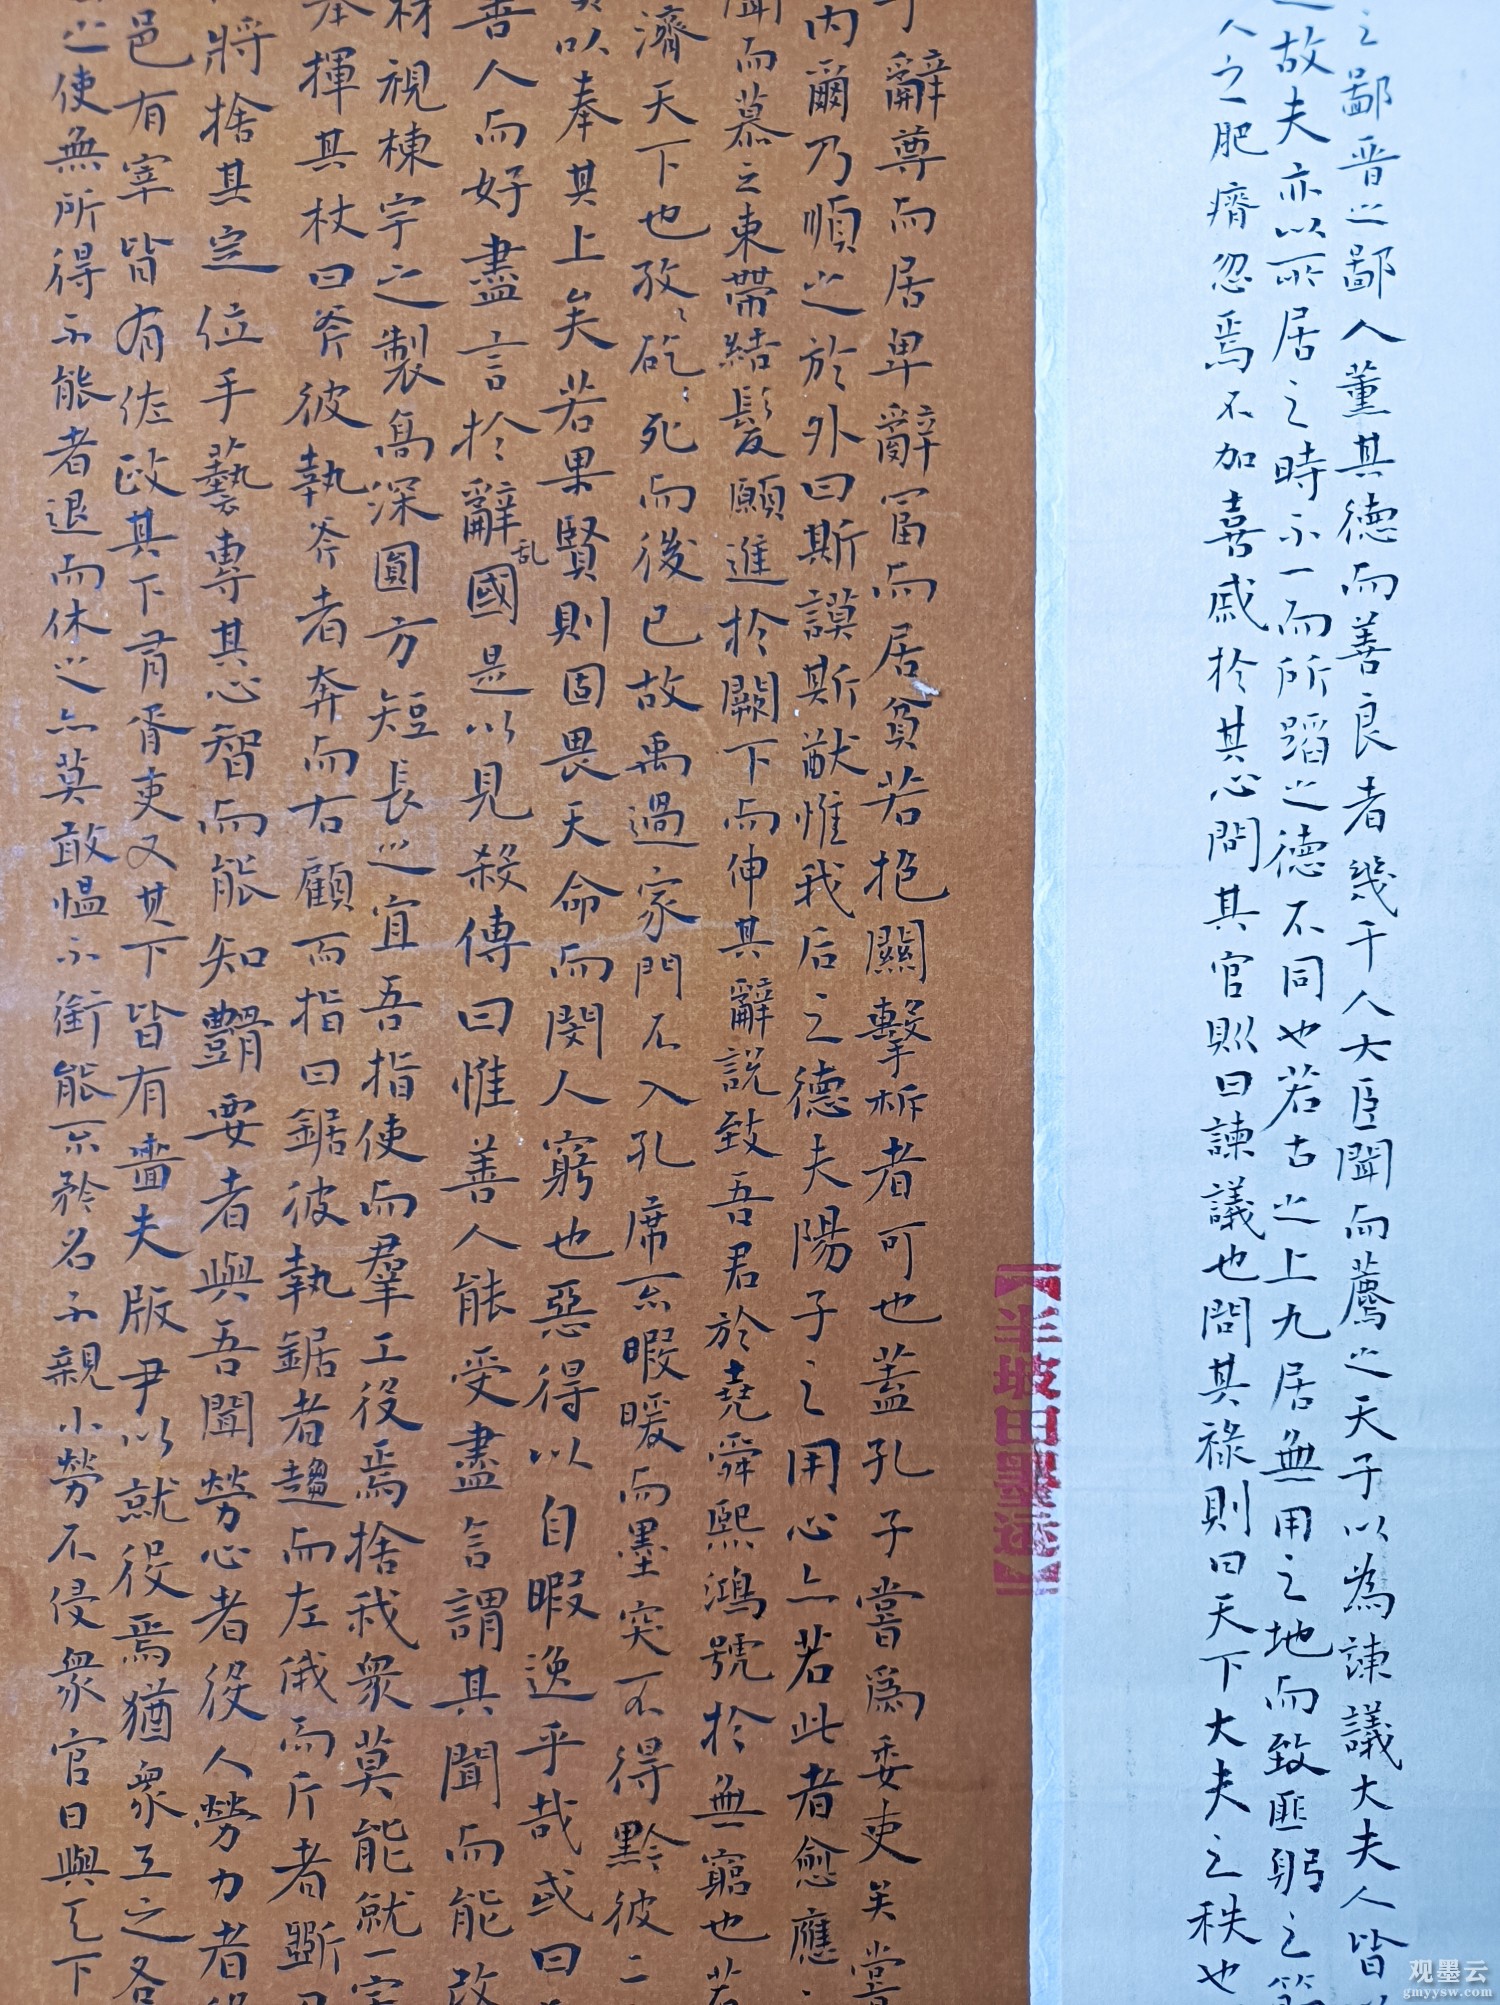 之鄙晋之鄙人薰其德而善良者幾千人大臣聞而薦之天子以為諫議大夫人皆
故夫亦以所居之時不一而所蹈之德不同也若古之上九居無用之地而致匪躬之節
人之肥瘠忽焉不加喜戚於其心問其官則曰諫議也問其祿則曰天下大夫之秩也
辭尊而居卑辭富而居貧若抱關擊柝者可也蓋孔子嘗為委吏矣嘗
内爾乃順之於外曰斯謨斯猷惟我后之德夫陽子之用心亦若此者愈應
聞而慕之束帶結髮願進於闕下而伸其辭説致吾君於堯舜熙鴻號於無窮也若
濟天下也孜、矻、死而後已故禹過家門不入孔席不暇暖而墨突不得黔彼二
以奉其上矣若果賢則固畏天命而閔人窮也惡得以自暇逸乎哉或曰
善人而好盡言於辭國是以見殺傳曰惟善人能受盡言謂其聞而能改
乱
材視棟宇之製高深圓方短長之宜吾指使而羣工役焉捨我衆莫能就一宇
揮其杖曰斧彼執斧者奔而右顧而指曰鋸彼執鋸者趨而左俄而斤者斲
將捨其定位手藝專其心智而能知體要者與吾聞勞心者役人勞力者役
邑有宰皆有佐政其下有胥吏又其下皆有嗇夫版尹以就役焉猶衆工之各
之使無所得不能者退而休之亦莫敢愠不衒能不矜名不親小勞不侵衆官日與天下
【半坡田墨运】
观墨云
gmyysw.com